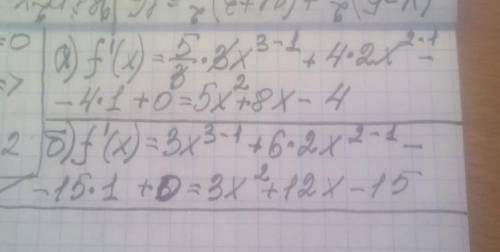 =0
а) f'(x) = 5/3 · 3x^{3-1} + 4·2x^{2-1} -
=>
- 4·1 + 0 = 5x^2 + 8x - 4
2
б) f'(x) = 3x^{3-1} + 6·2x^{2-1} -
- 15·1 + 0 = 3x^2 + 12x - 15